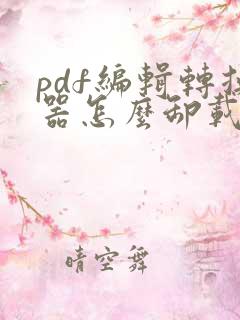 pdf編輯轉換
器怎麼卸載
晴空舞